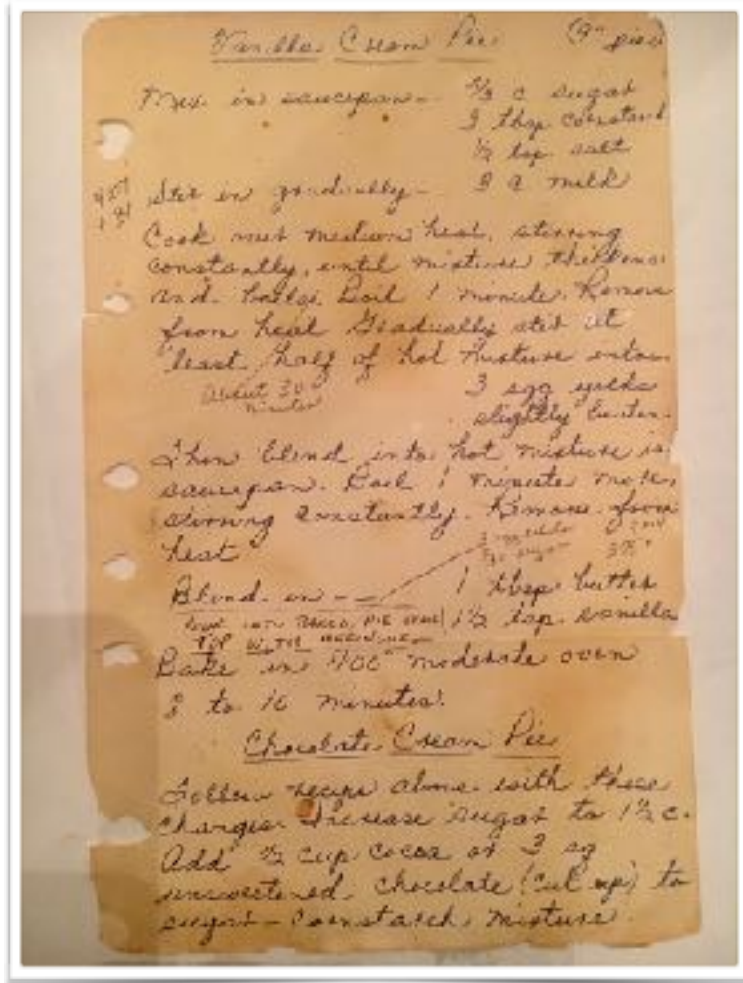 Vanilla Cream Pie (9" pie)
Mix in saucepan - 2/3 c sugar
3 tbsp cornstarch
1/2 tsp salt
Stir in gradually - 3 c milk
Cook over medium heat, stirring
constantly, until mixture thickens
and boils. Boil 1 minute. Remove
from heat Gradually stir at
least half of hot mixture into
About 30
minutes
3 egg yolks
slightly beaten.
Then blend into hot mixture in
saucepan. Boil 1 minute more,
stirring constantly. Remove from
heat
Blend in - 1 tbsp butter
INTO BAKED PIE 1 1/2 tsp vanilla
TOP WITH MERINGUE
Bake in 400° moderate oven
8 to 10 minutes.
Chocolate Cream Pie
Follow recipe above with these
changes Increase sugar to 1 1/2 c.
Add 1/2 cup cocoa or 3 sq
unsweetened chocolate (cut up) to
sugar - cornstarch mixture.